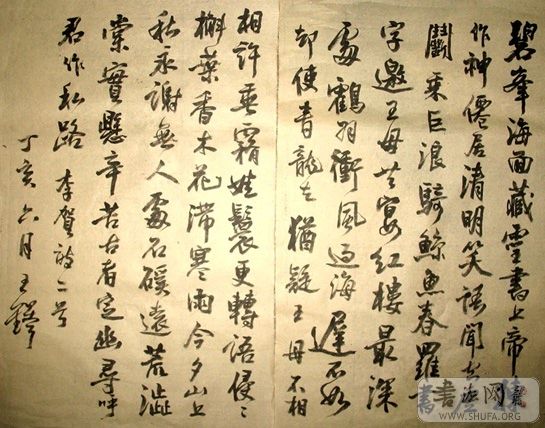 碧峯海面藏靈書上帝揀
作神僊居清明笑語聞空虛
鬭乘巨浪騎鯨魚春羅書
字邀王母共宴紅樓最深
處鶴羽衝風過海遲不如
却使青龍去猶疑王母不相
相許垂霧娃鬟更轉語侵〻
槲葉香木花滯寒雨今夕山上
秋永謝無人處石磎遠荒澁
棠實懸辛苦古者定幽尋呼
君作私路 李賀詩二首
丁亥六月王鐸
书法网
WWW.SHUFA.ORG